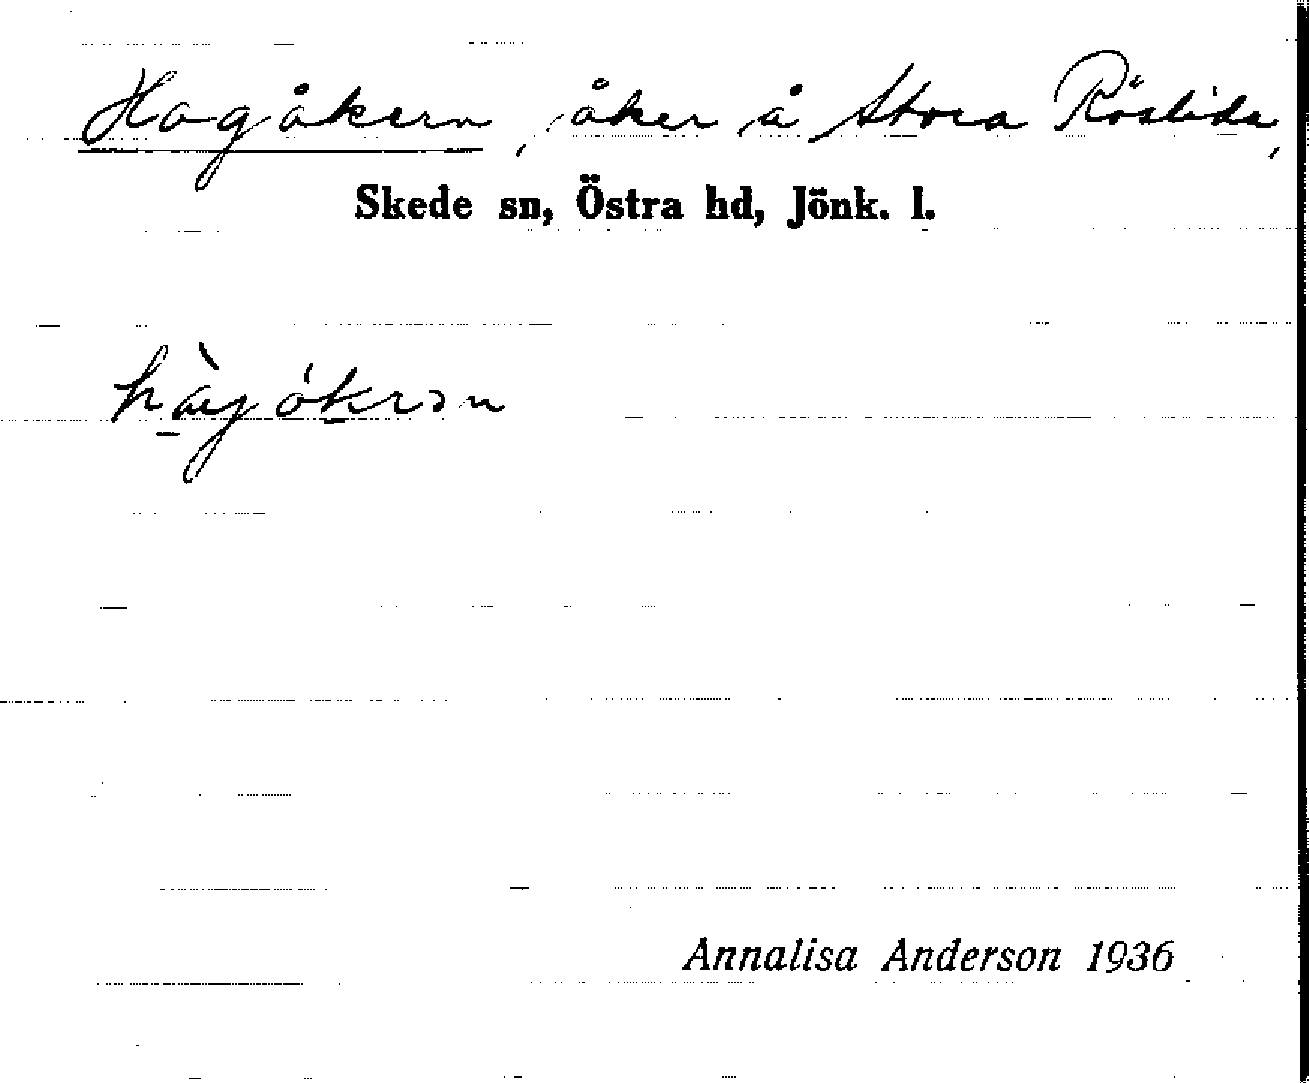 Hagåkern, åker å Stora Röslida,
Skede sn, Östra hd, Jönk. l.
hàgåkrən
Annalisa Anderson 1936